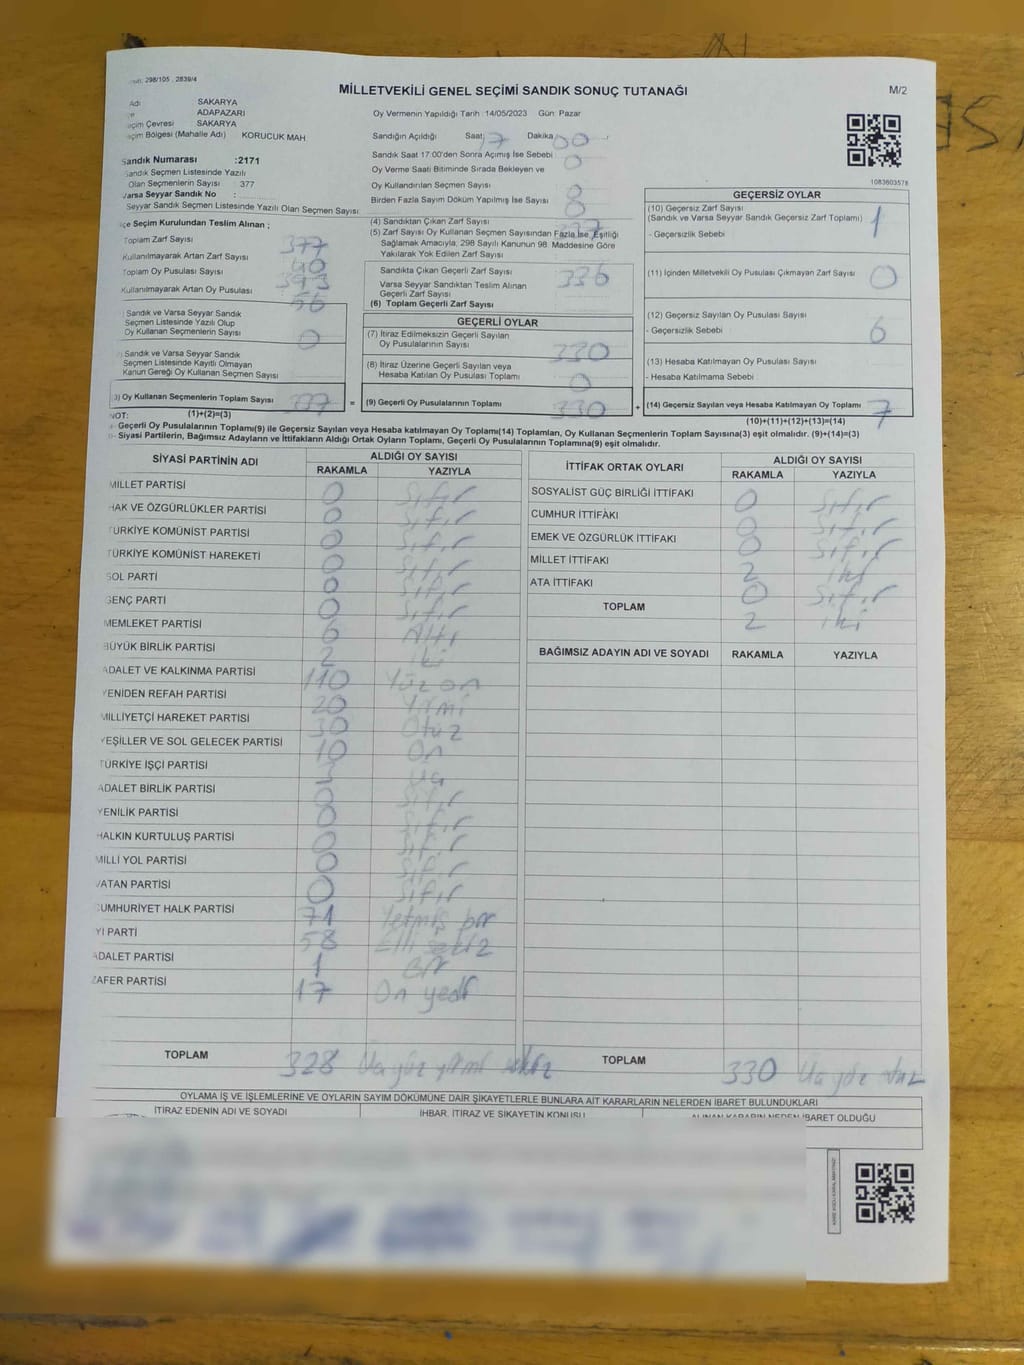 298/105 , 2839/4
MİLLETVEKİLİ GENEL SEÇİMİ SANDIK SONUÇ TUTANAĞI
M/2
Adı SAKARYA
ADAPAZARI
Seçim Çevresi SAKARYA
Seçim Bölgesi (Mahalle Adı) KORUCUK MAH
Sandık Numarası :2171
Sandık Seçmen Listesinde Yazılı
Olan Seçmenlerin Sayısı 377
Varsa Seyyar Sandık No :
Seyyar Sandık Seçmen Listesinde Yazılı Olan Seçmen Sayısı
Oy Vermenin Yapıldığı Tarih 14/05/2023 Gün: Pazar
Sandığın Açıldığı Saat 17 Dakika 00
Sandık Saat 17:00'den Sonra Açımış İse Sebebi
Oy Verme Saati Bitiminde Sırada Bekleyen ve 0
Oy Kullandırılan Seçmen Sayısı
Birden Fazla Sayım Döküm Yapılmış İse Sayısı
1083603578
İlçe Seçim Kurulundan Teslim Alınan ;
Toplam Zarf Sayısı 377
Kullanılmayarak Artan Zarf Sayısı 40
Toplam Oy Pusulası Sayısı 393
Kullanılmayarak Artan Oy Pusulası 56
Sandık ve Varsa Seyyar Sandık
Seçmen Listesinde Yazılı Olup
Oy Kullanan Seçmenlerin Sayısı 0
Sandık ve Varsa Seyyar Sandık
Seçmen Listesinde Kayıtlı Olmayan
Kanun Gereği Oy Kullanan Seçmen Sayısı
3) Oy Kullanan Seçmenlerin Toplam Sayısı 337 =
(4) Sandıktan Çıkan Zarf Sayısı 337
(5) Zarf Sayısı Oy Kullanan Seçmen Sayısından Fazla İse, Eşitliği
Sağlamak Amacıyla, 298 Sayılı Kanunun 98. Maddesine Göre
Yakılarak Yok Edilen Zarf Sayısı
Sandıkta Çıkan Geçerli Zarf Sayısı 336
Varsa Seyyar Sandıktan Teslim Alınan
Geçerli Zarf Sayısı
(6) Toplam Geçerli Zarf Sayısı
GEÇERLİ OYLAR
(7) İtiraz Edilmeksizin Geçerli Sayılan
Oy Pusulalarının Sayısı 330
(8) İtiraz Üzerine Geçerli Sayılan veya
Hesaba Katılan Oy Pusulası Toplamı 0
(9) Geçerli Oy Pusulalarının Toplamı 330 +
GEÇERSİZ OYLAR
(10) Geçersiz Zarf Sayısı 1
(Sandık ve Varsa Seyyar Sandık Geçersiz Zarf Toplamı)
- Geçersizlik Sebebi
(11) İçinden Milletvekili Oy Pusulası Çıkmayan Zarf Sayısı 0
(12) Geçersiz Sayılan Oy Pusulası Sayısı 6
- Geçersizlik Sebebi
(13) Hesaba Katılmayan Oy Pusulası Sayısı
- Hesaba Katılmama Sebebi
(14) Geçersiz Sayılan veya Hesaba Katılmayan Oy Toplamı 7
NOT: (1)+(2)=(3)
(10)+(11)+(12)+(13)=(14)
- Geçerli Oy Pusulalarının Toplamı(9) ile Geçersiz Sayılan veya Hesaba katılmayan Oy Toplamı(14) Toplamları, Oy Kullanan Seçmenlerin Toplam Sayısına(3) eşit olmalıdır. (9)+(14)=(3)
- Siyasi Partilerin, Bağımsız Adayların ve İttifakların Aldığı Ortak Oyların Toplamı, Geçerli Oy Pusulalarının Toplamına(9) eşit olmalıdır.
SİYASİ PARTİNİN ADI ALDIĞI OY SAYISI
RAKAMLA YAZIYLA
MİLLET PARTİSİ 0 Sıfır
HAK VE ÖZGÜRLÜKLER PARTİSİ 0 Sıfır
TÜRKİYE KOMÜNİST PARTİSİ 0 Sıfır
TÜRKİYE KOMÜNİST HAREKETİ 0 Sıfır
SOL PARTİ 0 Sıfır
GENÇ PARTİ 0 Sıfır
MEMLEKET PARTİSİ 6 Altı
BÜYÜK BİRLİK PARTİSİ 2 iki
ADALET VE KALKINMA PARTİSİ 110 Yüz on
YENİDEN REFAH PARTİSİ 20 Yirmi
MİLLİYETÇİ HAREKET PARTİSİ 30 Otuz
YEŞİLLER VE SOL GELECEK PARTİSİ 10 On
TÜRKİYE İŞÇİ PARTİSİ 3 Üç
ADALET BİRLİK PARTİSİ 0 Sıfır
YENİLİK PARTİSİ 0 Sıfır
HALKIN KURTULUŞ PARTİSİ 0 Sıfır
MİLLİ YOL PARTİSİ 0 Sıfır
VATAN PARTİSİ 0 Sıfır
CUMHURİYET HALK PARTİSİ 71 Yetmiş bir
İYİ PARTİ 58 Elli sekiz
ADALET PARTİSİ 1 Bir
ZAFER PARTİSİ 17 On yedi
TOPLAM 328 Üç yüz yirmi sekiz
İTTİFAK ORTAK OYLARI ALDIĞI OY SAYISI
RAKAMLA YAZIYLA
SOSYALİST GÜÇ BİRLİĞİ İTTİFAKI 0 Sıfır
CUMHUR İTTİFAKI 0 Sıfır
EMEK VE ÖZGÜRLÜK İTTİFAKI 0 Sıfır
MİLLET İTTİFAKI 2 iki
ATA İTTİFAKI 0 Sıfır
TOPLAM 2 iki
BAĞIMSIZ ADAYIN ADI VE SOYADI RAKAMLA YAZIYLA
TOPLAM 330 Üç yüz otuz
OYLAMA İŞ VE İŞLEMLERİNE VE OYLARIN SAYIM DÖKÜMÜNE DAİR ŞİKAYETLERLE BUNLARA AİT KARARLARIN NELERDEN İBARET BULUNDUKLARI
İTİRAZ EDENİN ADI VE SOYADI İHBAR, İTİRAZ VE ŞİKAYETİN KONUSU ALINAN KARARIN NEDEN İBARET OLDUĞU